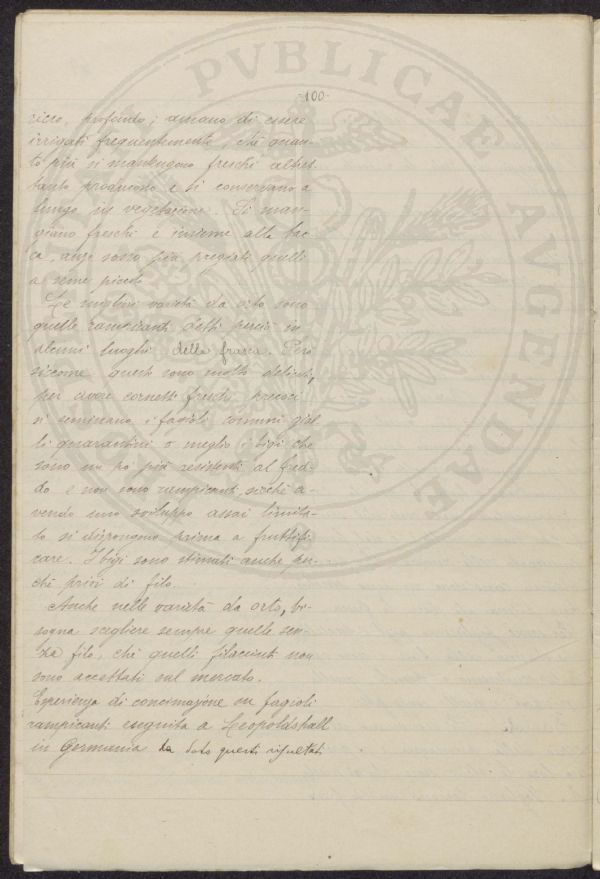 -100-
ricco, profondo; amano di essere
irrigati frequentemente, chè quan-
to più si mantengono freschi altret-
tanto producono e si conservano a
lungo in vegetazione. Si man-
giano freschi e insieme alla bac-
ca, anzi sono più pregiati quelli
a seme piccolo.
Le migliori varietà da orto sono
quelle rampicanti detti perciò in
alcuni luoghi della frasca. Però
siccome questi sono molto delicati,
per avere cornetti freschi precoci
si seminano i fagioli comuni gial-
li quarantini o meglio i bigi che
sono un pò più resistenti al fred-
do e non sono rampicanti, sicchè a-
vendo uno sviluppo assai limita-
to si dispongono prima a fruttifi-
care. I bigi sono stimati anche per-
chè privi di filo.
Anche nelle varietà da orto, bi-
sogna scegliere sempre quelle sen-
za filo, chè quelli filacciuti non
sono accettati sul mercato.
Esperienza di concimazione su fagioli
rampicanti eseguita a Leopoldshall
in Germania ha dato questi risultati
PVBLICAE AVGENDAE